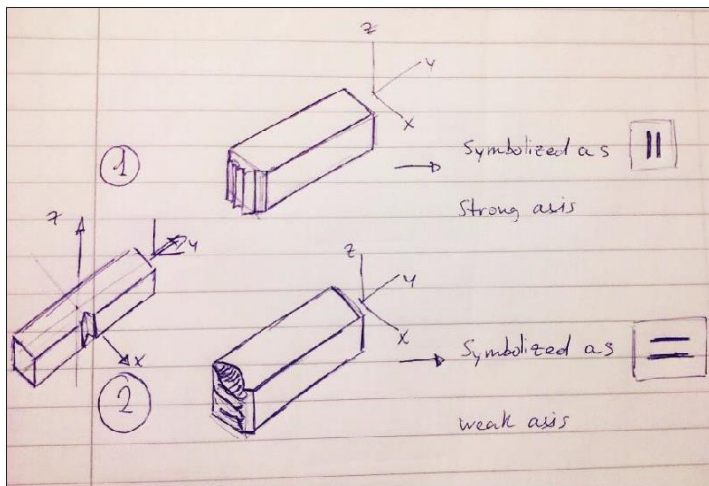 Z
Y
X
1
Symbolized as
Strong axis
Z
Y
X
2
Z
Y
X
Symbolized as
weak axis